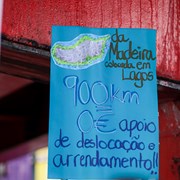 da
Madeira
colocada em
Lagos
900 km
=
0€ apoio
de deslocação e
arrendamento!!